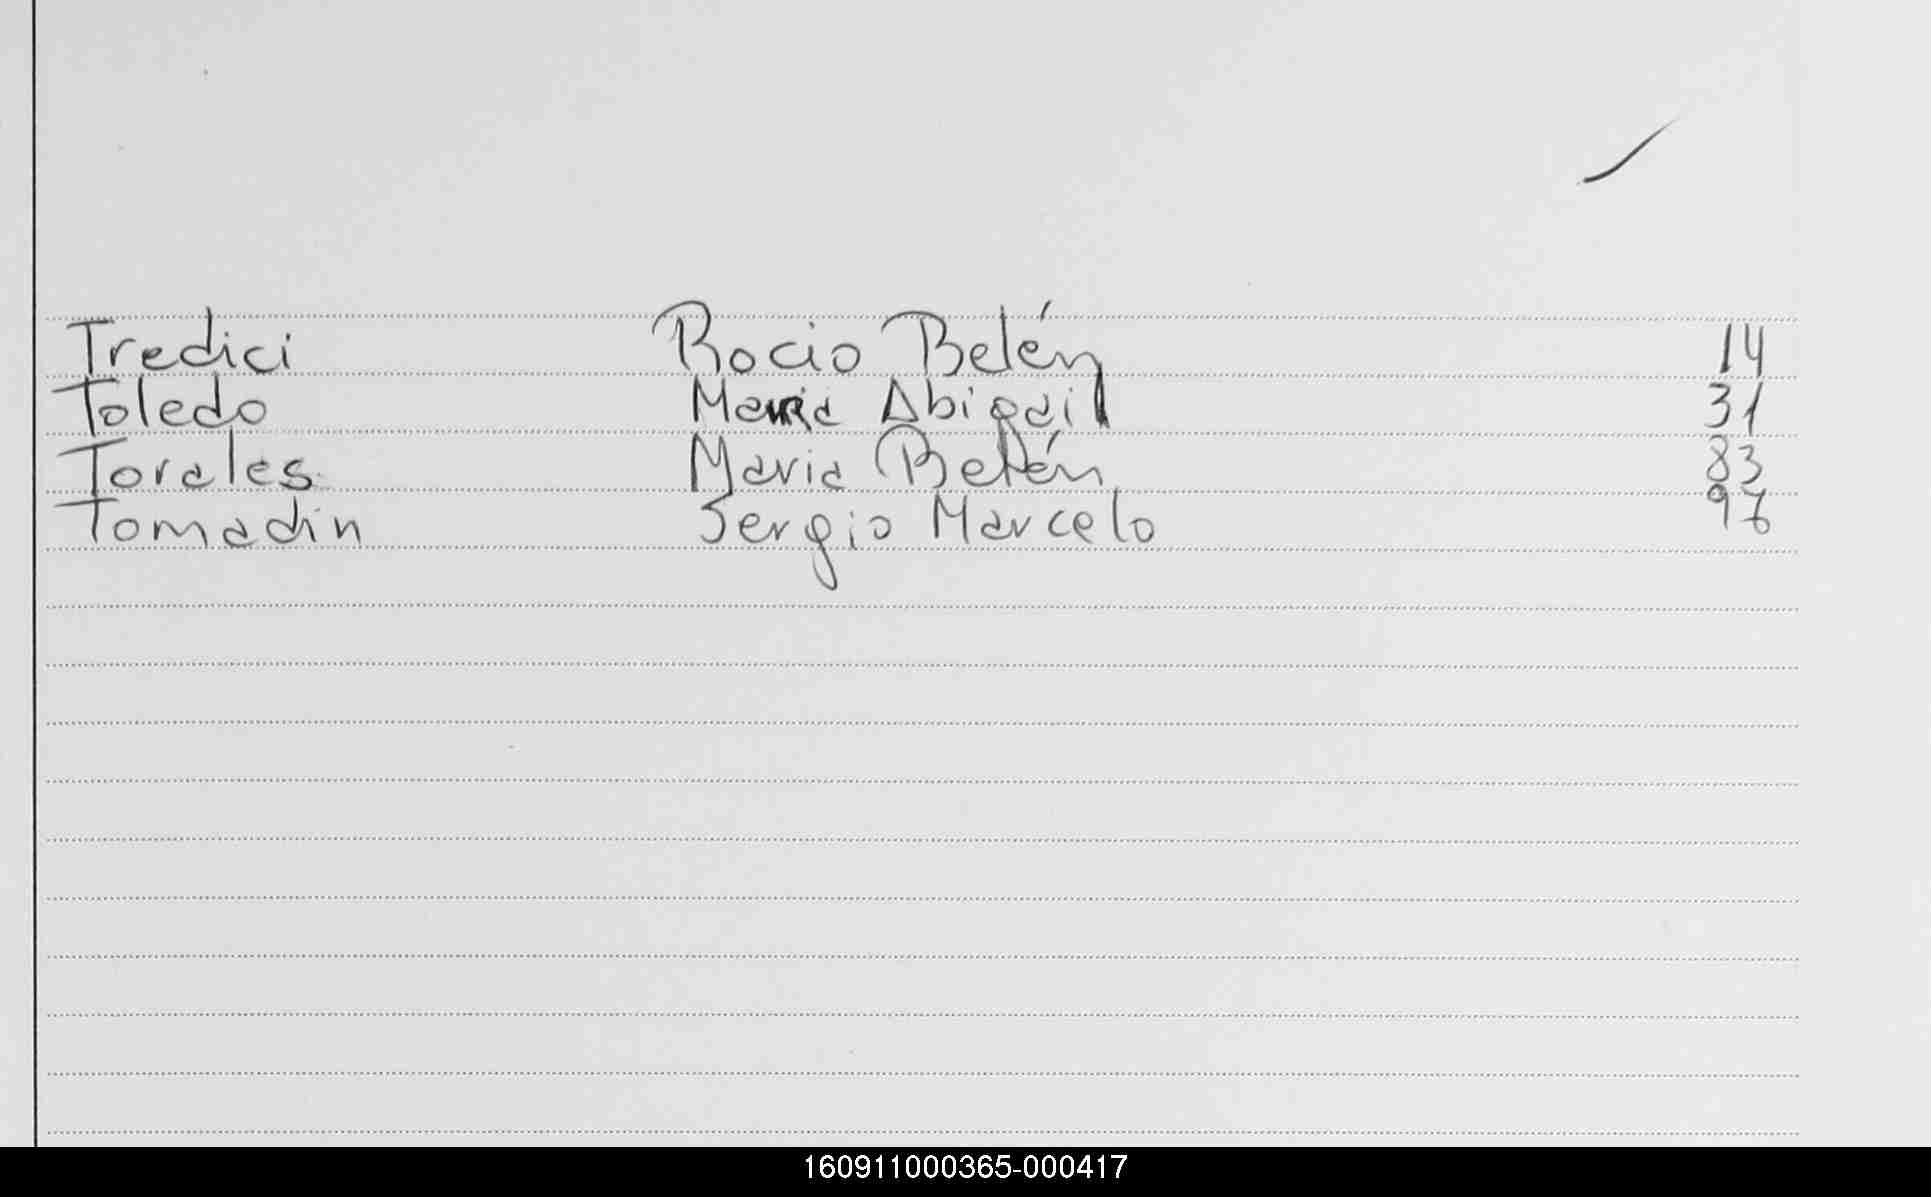 Tredici Rocio Belén 14
Toledo Maria Abigail 31
Torales Maria Belén 83
Tomadin Sergio Marcelo 96
160911000365-000417